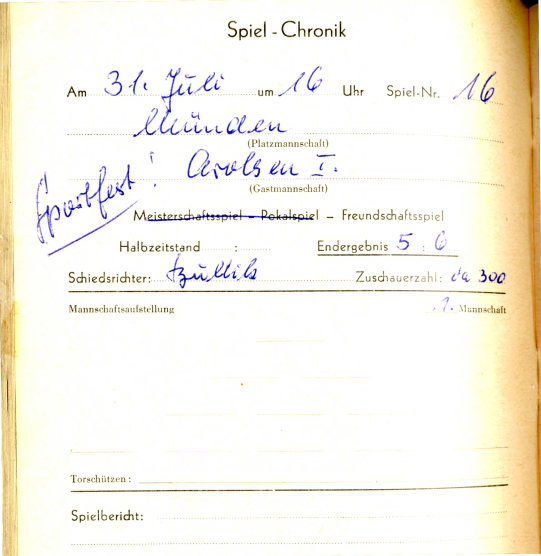 Spiel - Chronik
Am 31. Juli um 16 Uhr Spiel-Nr. 16
Münden
(Platzmannschaft)
Sportfest! Arolsen I.
(Gastmannschaft)
Meisterschaftsspiel – Pokalspiel – Freundschaftsspiel
Halbzeitstand : Endergebnis 5 : 6
Schiedsrichter: Zuschauerzahl: ca 300
Mannschaftsaufstellung 1. Mannschaft
Torschützen:
Spielbericht: